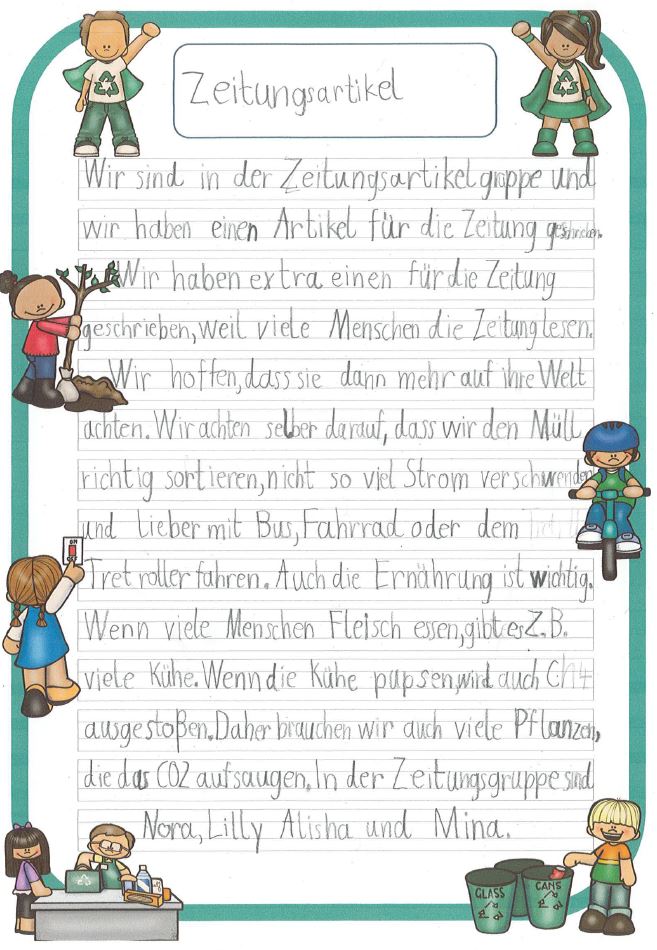 Zeitungsartikel
Wir sind in der Zeitungsartikelgruppe und
wir haben einen Artikel für die Zeitung geschrieben.
Wir haben extra einen für die Zeitung
geschrieben, weil viele Menschen die Zeitung lesen.
Wir hoffen, dass sie dann mehr auf ihre Welt
achten. Wir achten selber darauf, dass wir den Müll
richtig sortieren, nicht so viel Strom verschwenden
und Lieber mit Bus, Fahrrad oder dem
Tretroller fahren. Auch die Ernährung ist wichtig.
Wenn viele Menschen Fleisch essen, gibt es Z.B.
viele Kühe. Wenn die Kühe pupsen, wird auch Ch4
ausgestoßen. Daher brauchen wir auch viele Pflanzen,
die das CO2 aufsaugen. In der Zeitungsgruppe sind
Nora, Lilly Alisha und Mina.
ON
OFF
GLASS
CANS